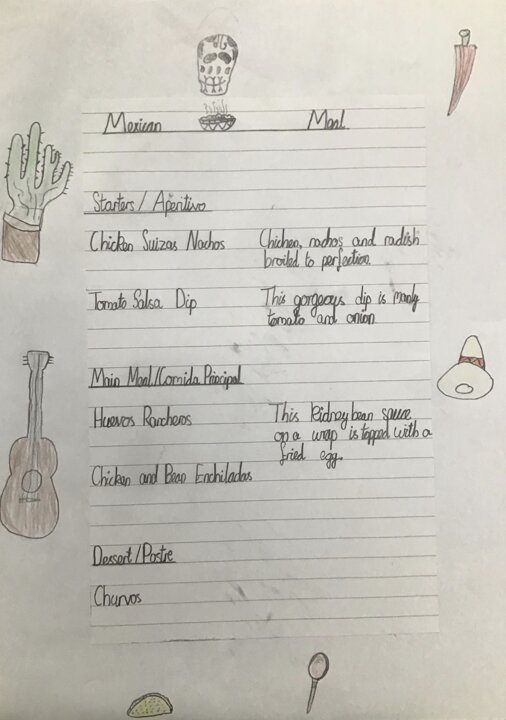 Mexican Meal
Starters / Aperitivo
Chicken Suizas Nachos Chicken, nachos and radish
broiled to perfection.
Tomato Salsa Dip This gorgeous dip is manly
tomato and onion
Main Meal/Comida Principal
Huevos Rancheros This kidney bean sauce
on a wrap is topped with a
fried egg.
Chicken and Bean Enchiladas
Dessert/Postre
Churros